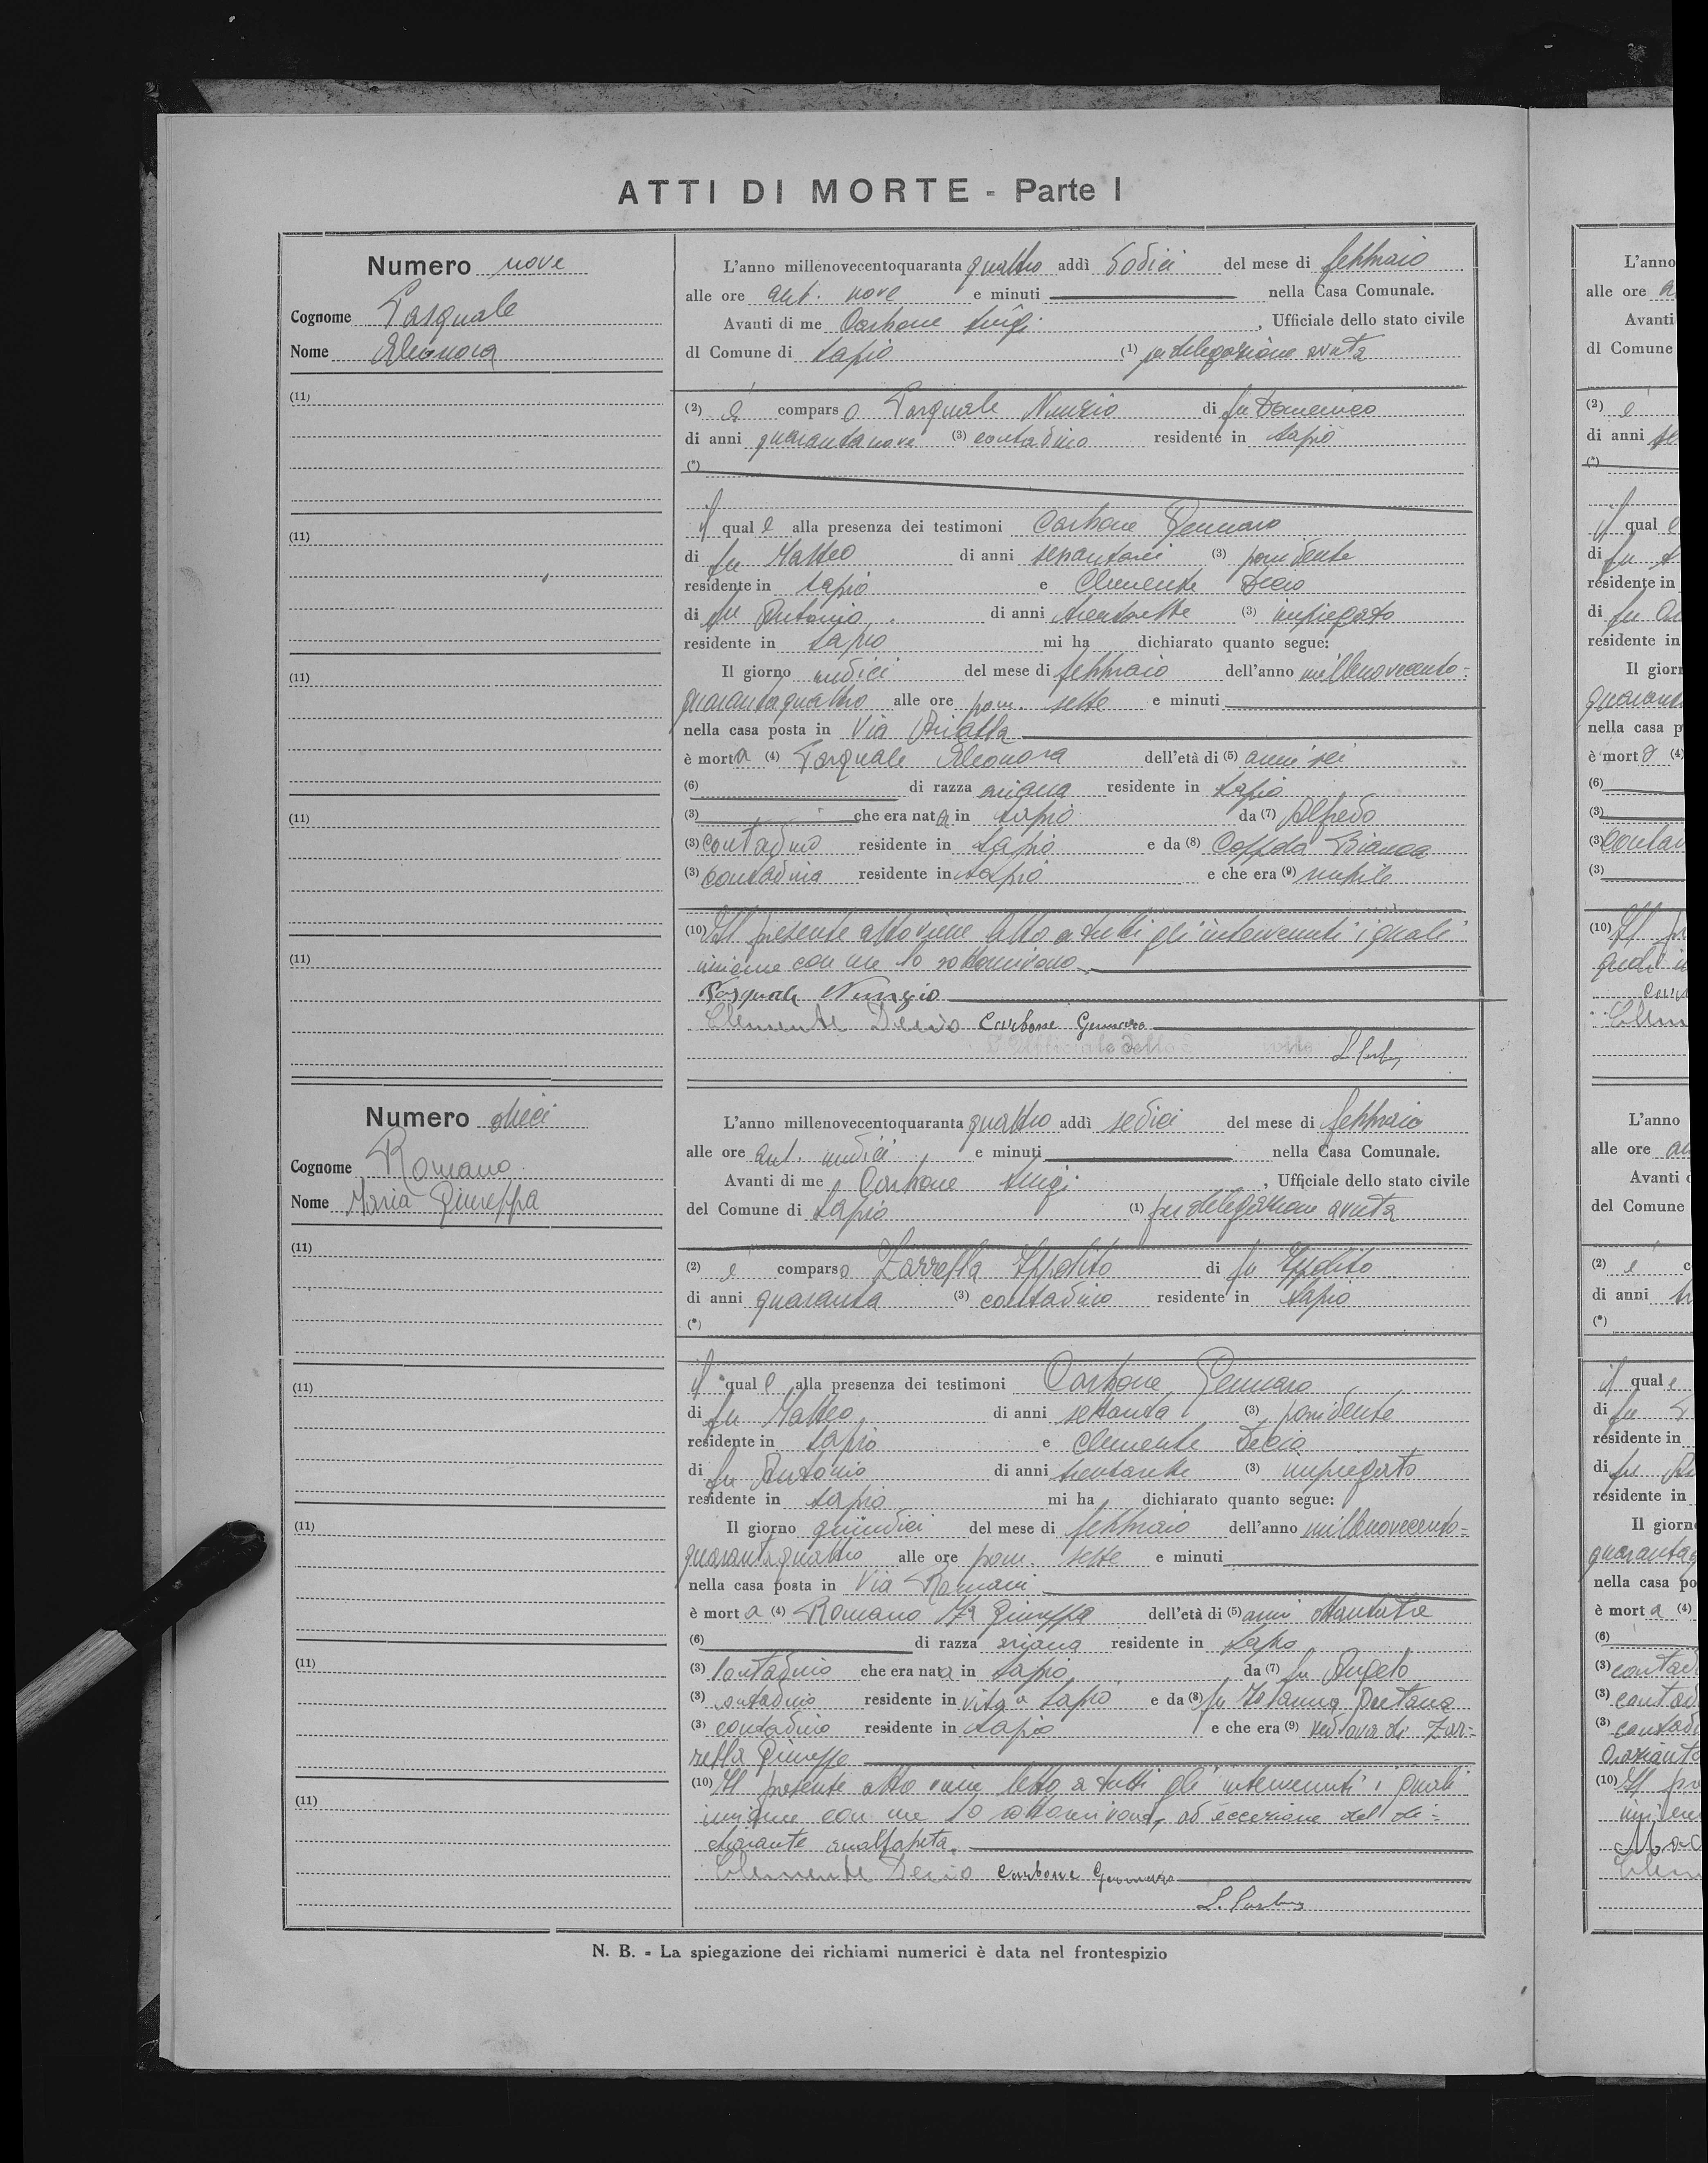 ATTI DI MORTE - Parte I
Numero nove
Cognome Pasquale
Nome Eleonora
(11)
(11)
(11)
(11)
(11)
L'anno millenovecentoquaranta quattro addì dodici del mese di febbraio
alle ore ant. nove e minuti nella Casa Comunale.
Avanti di me Carbone Luigi, Ufficiale dello stato civile
dl Comune di Lapio (1) per delegazione avuta
(2) è comparso Pasquale Nunzio di fu Domenico
di anni quarantanove (3) contadino residente in Lapio
(*)
il quale alla presenza dei testimoni Carbone Gennaro
di fu Matteo di anni (3) possidente
residente in Lapio e Clemente Decio
di fu Antonio di anni trentasette (3) impiegato
residente in Lapio mi ha dichiarato quanto segue:
Il giorno undici del mese di febbraio dell'anno millenovecento=
quarantaquattro alle ore pom. sette e minuti
nella casa posta in Via
è morta (4) Pasquale Eleonora dell'età di (5) anni sei
(6) di razza ariana residente in Lapio
(3) che era nata in Lapio da (7) Alfredo
(3) contadino residente in Lapio e da (8) Coppola Bianca
(3) contadina residente in Lapio e che era (9) nubile
(10) Il presente atto viene letto a tutti gli intervenuti i quali
insieme con me lo sottoscrivono.
Pasquale Nunzio
Clemente Decio Carbone Gennaro
L'Ufficiale dello
L. Carbone
Numero dieci
Cognome Romano
Nome Maria Giuseppa
(11)
(11)
(11)
(11)
(11)
L'anno millenovecentoquaranta quattro addì sedici del mese di febbraio
alle ore ant. undici e minuti nella Casa Comunale.
Avanti di me Carbone Luigi, Ufficiale dello stato civile
del Comune di Lapio (1) per delegazione avuta
(2) è comparso Zarrella Ippolito di fu Ippolito
di anni quaranta (3) contadino residente in Lapio
(*)
il quale alla presenza dei testimoni Carbone Gennaro
di fu Matteo di anni settanta (3) possidente
residente in Lapio e Clemente Decio
di fu Antonio di anni trentasette (3) impiegato
residente in Lapio mi ha dichiarato quanto segue:
Il giorno quindici del mese di febbraio dell'anno millenovecento=
quarantaquattro alle ore pom. sette e minuti
nella casa posta in Via Romani
è morta (4) Romano Ma Giuseppa dell'età di (5) anni ottantatre
(6) di razza ariana residente in Lapio
(3) contadina che era nata in Lapio da (7) fu Angelo
(3) contadino residente in vita a Lapio e da (8) fu
(3) contadina residente in Lapio e che era (9) vedova di Zar=
rella Giuseppe
(10) Il presente atto viene letto a tutti gli intervenuti i quali
insieme con me lo sottoscrivono, ad eccezione del di=
chiarante analfabeta.
Clemente Decio Carbone Gennaro
L. Carbone
N. B. - La spiegazione dei richiami numerici è data nel frontespizio
L'anno
alle ore
Avanti
dl Comune
(2) è
di anni
(*)
il quale
di fu
residente in
di fu
residente in
Il giorn
quaranta
nella casa p
è mort (4)
(6)
(3)
(3)
(3)
(10) Il
L'anno
alle ore
Avanti
del Comune
(2) è c
di anni
(*)
il quale
di fu
residente in
di fu
residente in
Il giorno
quaranta
nella casa po
è morta (4)
(6)
(3)
(3)
(3)
(10) Il